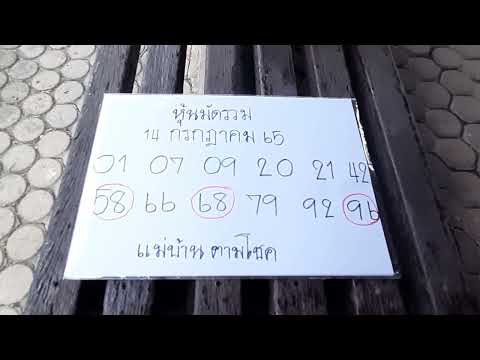 หุ้นมัดรวม
14 กรกฎาคม 65
01 07 09 20 21 42
58 66 68 79 92 96
แม่บ้าน ตามโชค